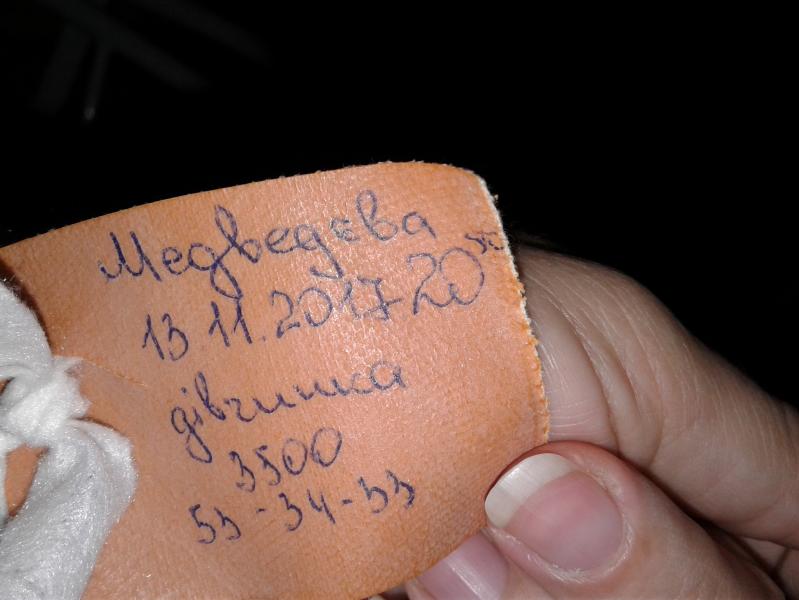 Медведєва
13 11.2017 20 50
дівчинка
3500
53-34-33